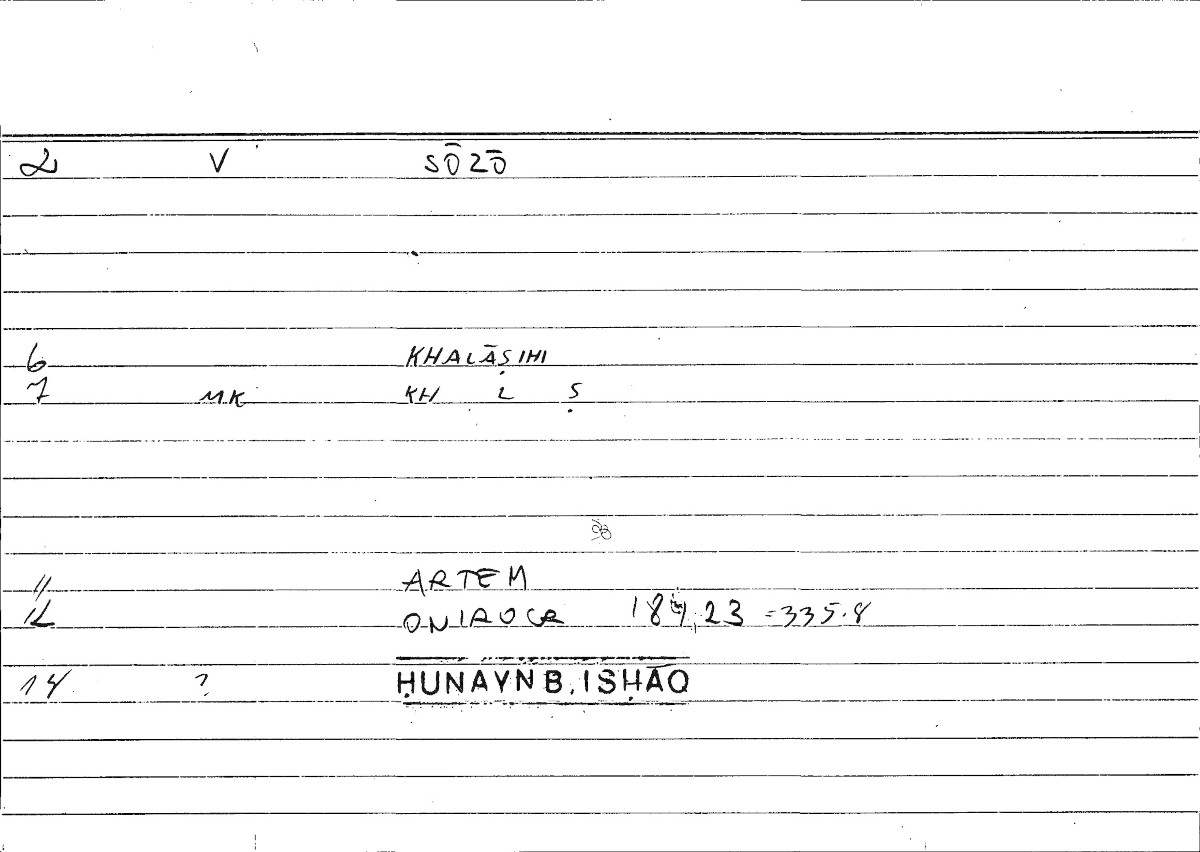 2 V SŌZŌ
6 KHALĀṢIHI
7 MK KH L Ṣ
11 ARTEM
12 ONIROCR 184,23 =335.8
14 ? ḤUNAYN B. ISḤĀQ